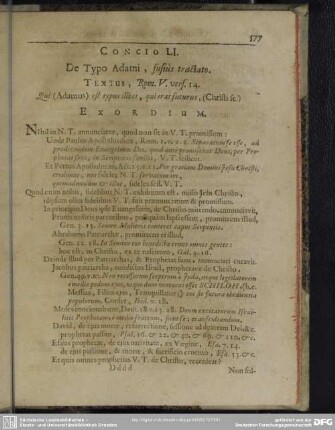 577
CONCIO LI.
De Typo Adami, fusius tractato.
TEXTUS, Rom. V. vers. 14.
Qui (Adamus) est typus illius, qui erat futurus, (Christi sc.)
EXORDIUM.
Nihil in N. T. annunciatur, quod non sit in V. T. promissum:
Unde Paulus Apostolus dicit, Rom. 1. v. 2. Separatum se esse, ad
prædicandum Evangelium Dei, quod ante promiserat Deus, per Pro-
phetas suos, in Scripturis sanctis, V. T. scilicet.
Et Petrus Per gratiam Domini Jesu Christi,
credimus, nos fideles N. T. servatum iri,
quemadmodum & illi, fideles sc. V. T.
Quodenim nobis, fidelibus N. T. exhibitum est, nisi Jesu Christo,
id ipsum olim fidelibus V. T. fuit præmunitum & promissum.
In principio Deus ipse Evangelium, de Christo mittendo, annunciavit,
Primis nostris parentibus, postquam lapsi essent, promittens illud,
Gen. 3. 15. Semen Mulieris conteret caput Serpentis.
Abrahamum Patriarcham, promittens ei illud,
Gen. 22. 18. In Semine tuo benedicentur omnes gentes:
hoc est, in Christo, ex te nascituro, Gal. 3. 16.
Deinde illud per Patriarchas, & Prophetas suos, annunciari curavit.
Jacobus patriarcha, prophetavit de Christo,
Gen. 49. v. 10. Non recessurum sceptrum à Juda, neque legislatorem
è medio pedum ejus, usque dum venturus esset SCHILOH h. e.
Messias, Filius ejus, Tranquillator,) cui sit futura obedientia
populorum. Confer, Ibid. v. 18.
Moses concionatur, Deut. 18. v. 15. Deum excitaturum Israëli-
suis Prophetam è medio fratrum, quem audiendum,
David, de ejus morte, resurrectione, sessione ad dexteram Dei &c.
prophetat passim, Psal. 16. & 22. & 69. & 110. &c.
Esaias propheta, de ejus nativitate, ex Virgine, Esa. 7. 14.
de ejus passione, & morte, & sacrificio cruento, Esa. 53. &c.
Et quis omnes prophetias V. T. de Christo, recenseat?
Dddd
Non sol-